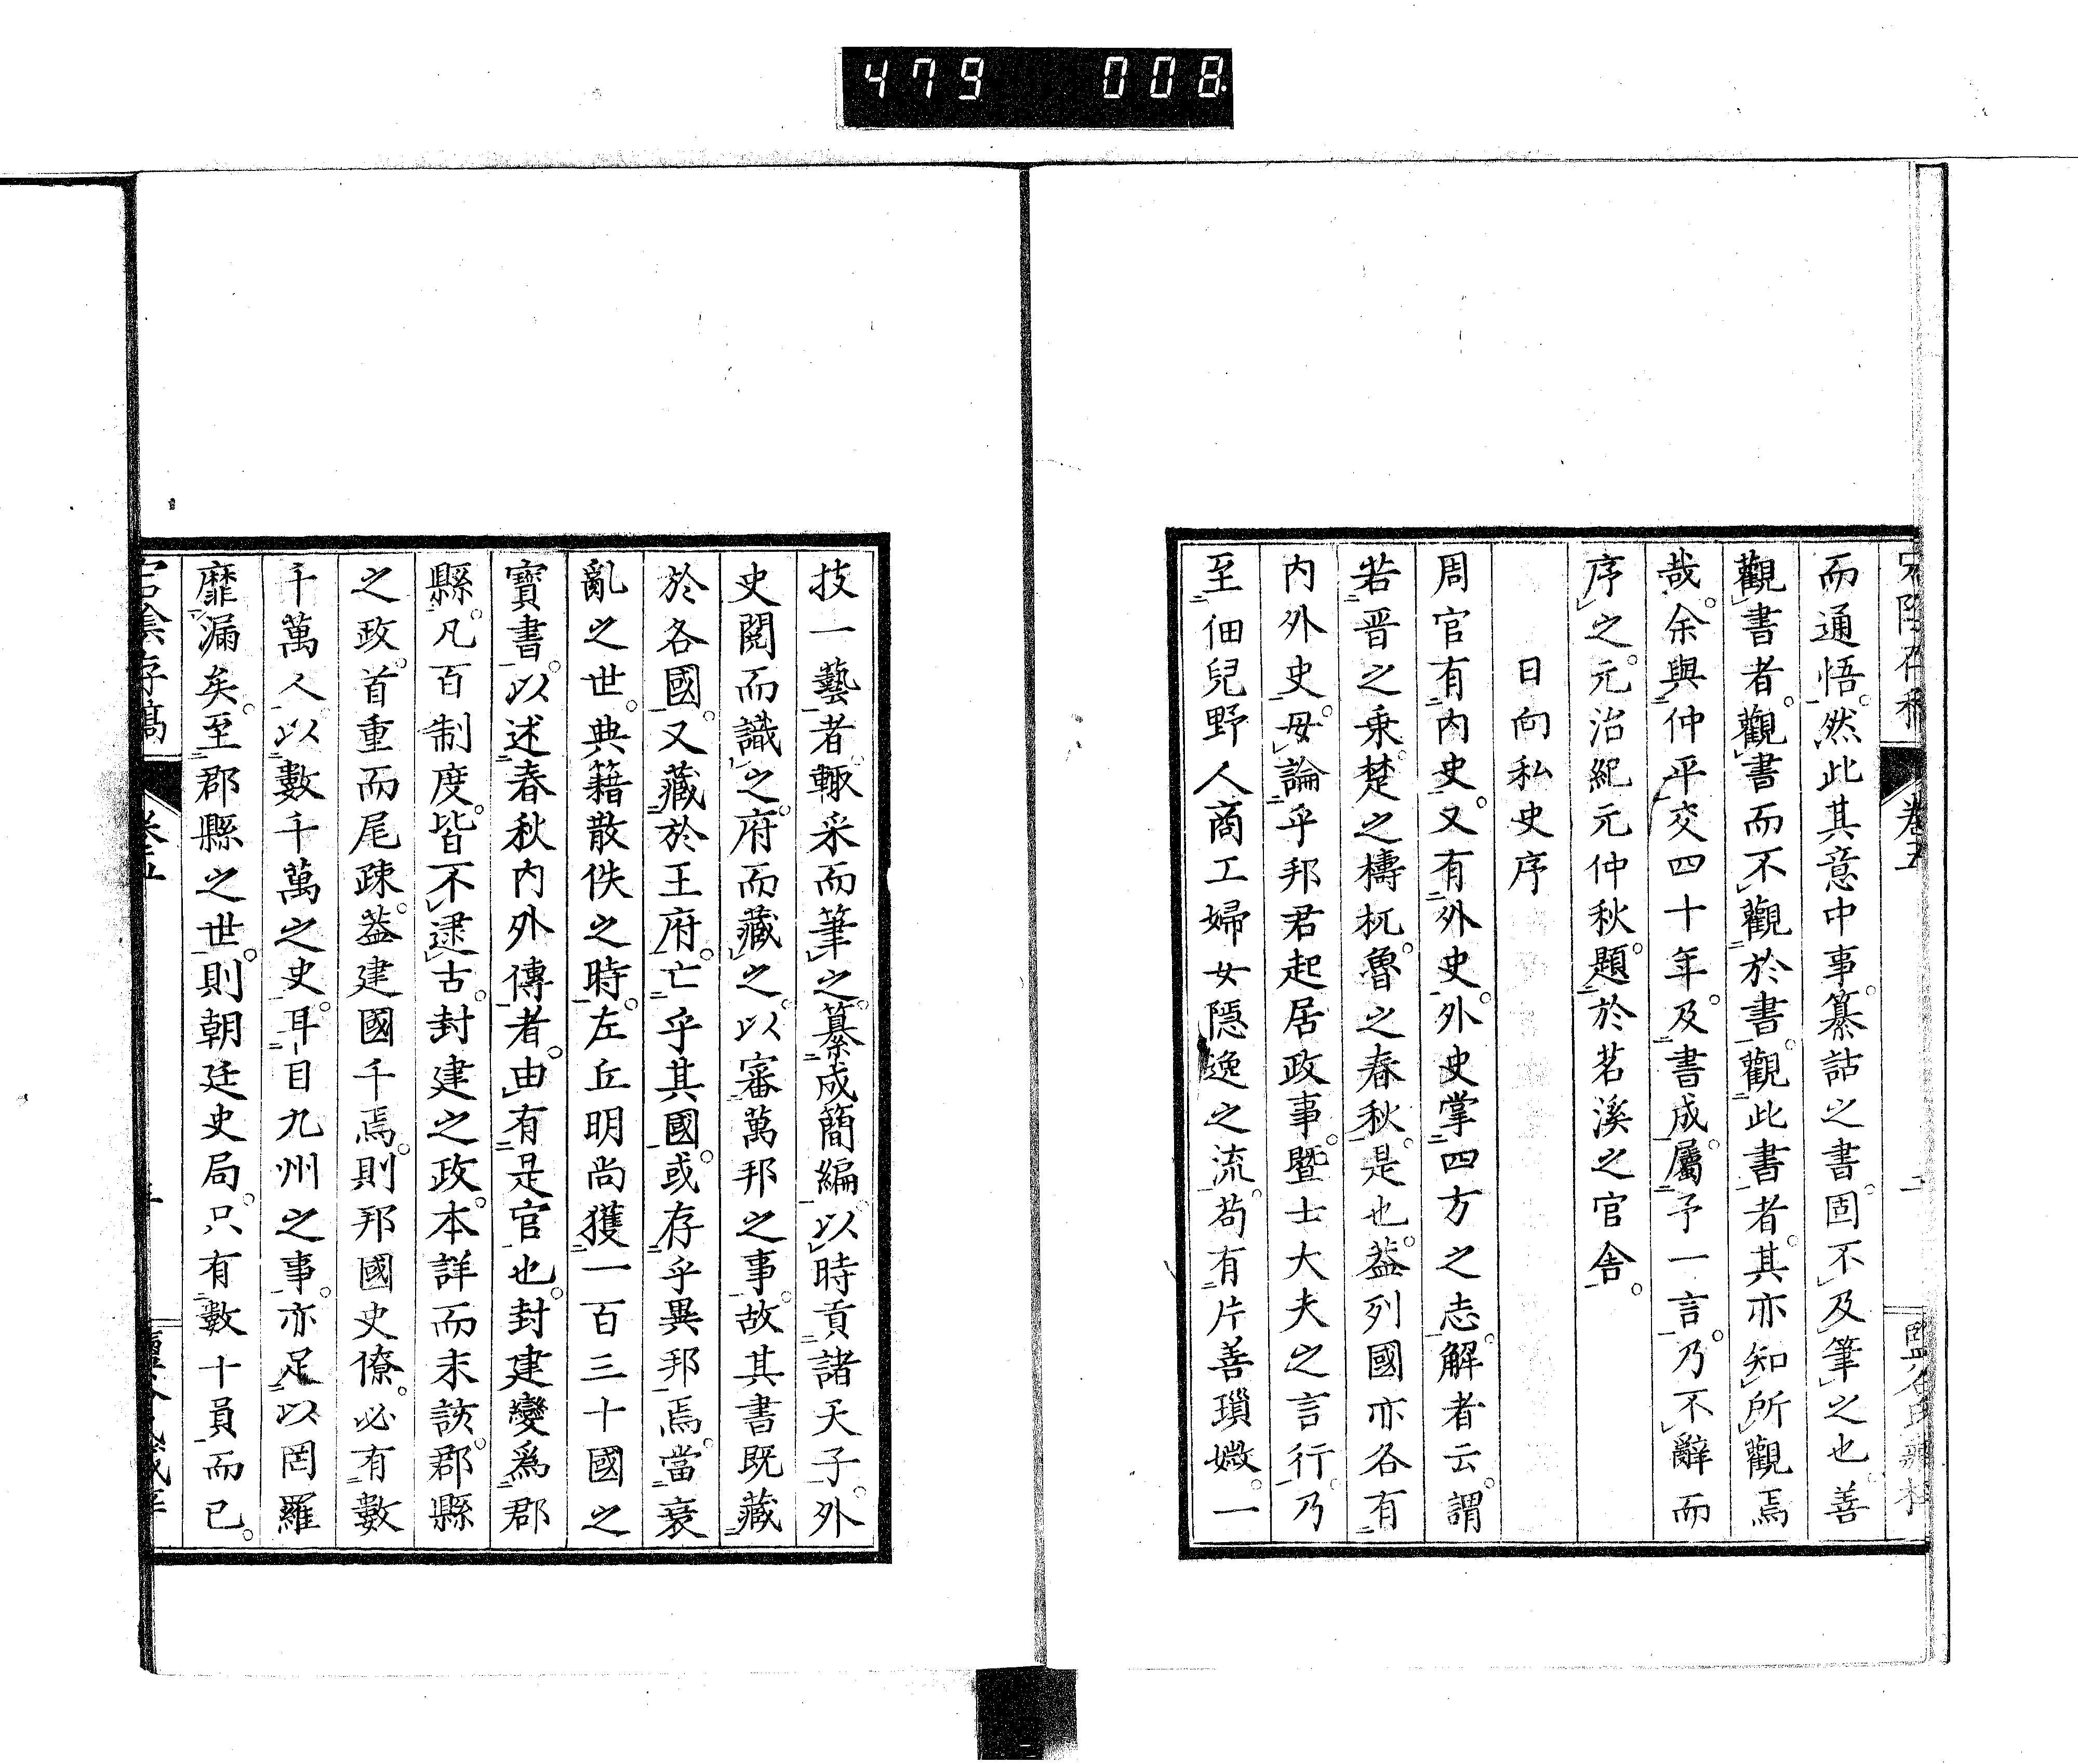 479 008
而通悟。然此其意中事。纂詁之書。固不及筆之也。善
觀書者。觀書而不觀於書。觀此書者。其亦知所觀焉
哉。余與仲平交四十年。及書成。屬予一言。乃不辭而
序之。元治紀元仲秋。題於茗溪之官舍。
日向私史序
周官有内史。又有外史。外史掌四方之志。解者云。謂
若晋之乗。楚之檮杌。魯之春秋。是也。葢列國亦各有
内外史。毋論乎邦君起居政事。曁士大夫之言行。乃
至佃兒野人商工婦女隱逸之流。苟有片善瑣媺。一
技一藝者。輙采而筆之。纂成簡編。以時貢諸天子。外
史閲而識之。府而藏之。以審萬邦之事。故其書既藏
於各國。又藏於王府。亡乎其國。或存乎異邦焉。當衰
亂之世。典籍散佚之時。左丘明尚獲一百三十國之
寶書。以述春秋内外傳者。由有是官也。封建變爲郡
縣。凡百制度。皆不逮古。封建之政。本詳而末該。郡縣
之政。首重而尾疎。葢建國千焉。則邦國史僚。必有數
千萬人。以數千萬之史。耳目九州之事。亦足以罔羅
靡漏矣。至郡縣之世。則朝廷史局。只有數十員而已。
卷五